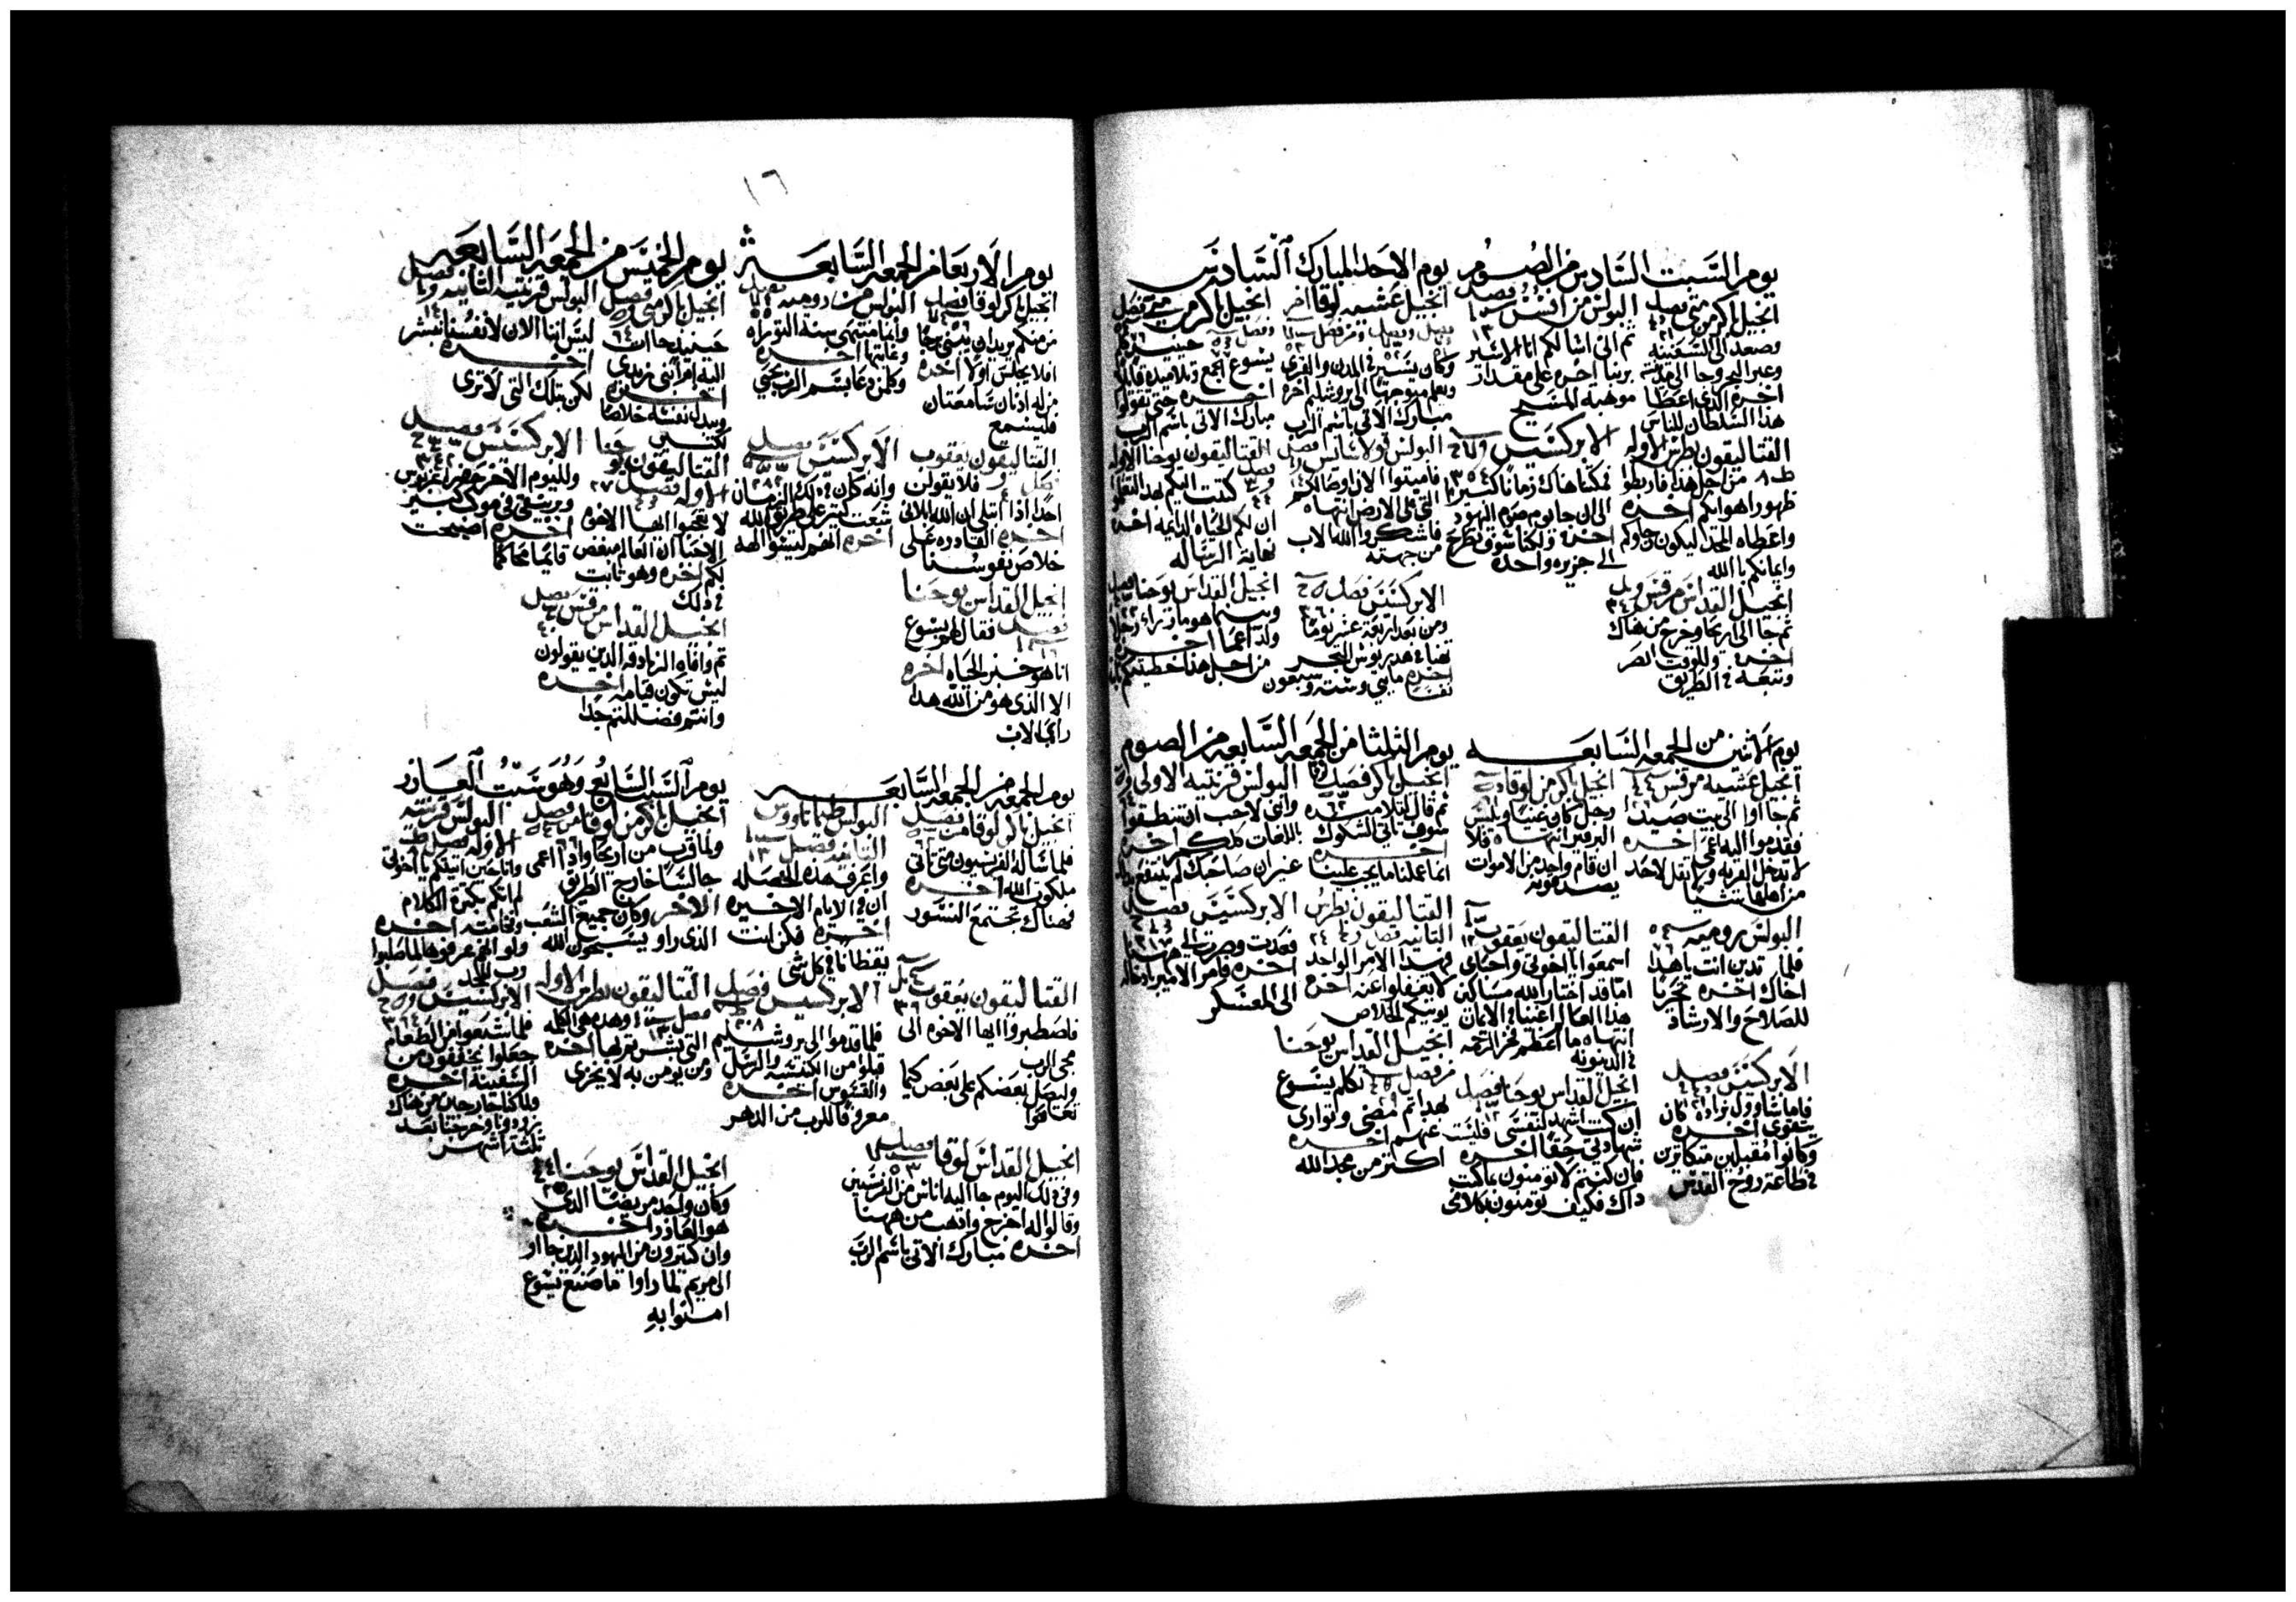 يوم السبت السادس من الصوم
انجيل باكر من متى فصل
وصعد الى السفينه
وعبر البحر وجا الى مدينته
اخره الذى اعطا
هذا السلطان للناس
البولس من افسس فصل
ثم الى اسالكم انا الاسير
بربنا اخره على مقدار
موهبة المسيح
القتاليقون بطرس الاوله
من اجل هذا فاربطوا
ظهور اهوايكم اخره
واعطاه المجد ليكون رجاوكم
وايمانكم بالله
الابركسيس
فمكثنا هناك زمانا كثيرا
الى ان جا يوم صوم اليهود
اخره ولكنا سوف نطرح
الى جزيره واحده
انجيل القداس مرقس
ثم جا الى اريحا وخرج من هناك
اخره وللوقت ابصر
وتبعه فى الطريق
يوم الاحد المبارك السادس
انجيل عشيه لوقا اخر
وكان يسير فى المدن والقرى
ويعلم متوجها الى يروشليم اخره
مبارك الاتى باسم الرب
انجيل باكر من متى فصل
حينيذ كلم
يسوع الجمع وتلاميذه قايلا
اخره حتى تقولوا
مبارك الاتى باسم الرب
البولس قولاسايس فصل
فاميتوا الان اوصالكم
التى على الارض انتهاه
فاشكروا الله الاب
من جهته
القتاليقون يوحنا الاوله
كتبت اليكم بهذا لتعلموا
ان لكم الحياه الدايمه اخره
نهاية الرساله
الابركسيس فصل
ومن بعد اربعة عشر يوما
تهنا فى هدريوس البحر
اخره مايتى وسته وسبعون
نفسا
انجيل القداس يوحنا فصل
وبينما هو مار راى رجلا
ولد اعما اخره
من اجل هذا خطيتكم ثابته
يوم الاثنين من الجمعه السابعه
انجيل عشيه مرقس
ثم جااوا الى بيت صيدا
فقدموا اليه اعمى اخره
لا تدخل القريه ولا تقل لاحد
من اهلها شيا
انجيل باكر من لوقا
رجل كان غنيا ويلبس
البرفير انتهاه فلا
ان قام واحد من الاموات
يصدقونه
البولس روميه
فلما تدين انت يا هذا
اخاك اخره تحرنا
للصلاح والارشاد
القتاليقون يعقوب
اسمعوا يا اخوتى واحباى
اما قد اختار الله مساكين
هذا العالم اغنيا فى الايمان
انتهاه ما اعظم فخر الرحمه
فى الدينونه
الابركسيس فصل
فاما شاوول فزاده كان
يتقوى اخره
وكانوا مقبلين متكاثرين
فى طاعة روح القدس
انجيل القداس يوحنا فصل
ان كنت اشهد لنفسى فليست
شهادتى حقا اخره
فان كنتم لا تومنون بما كتب
ذاك فكيف تومنون بكلامى
يوم الثلثا من الجمعه السابعه من الصوم
انجيل باكر فصل
ثم قال لتلاميذه
سوف تاتى الشكوك
اخره
انما عملنا ما يجب علينا
البولس قرنتيه الاولى
وانى لاحب ان تنطقوا
باللغات كلكم اخره
غير ان صاحبك لم ينتفع بذلك
القتاليقون بطرس
الثانيه فصل
فهذا الامر الواحد
لا يغفلوا عنه اخره
يوتيكم الخلاص
الابركسيس فصل
فعدت وصرت الى ههنا
اخره فامر الامير بادخاله
الى المعسكر
انجيل القداس يوحنا
تكلم يسوع
بهذا ثم مضى وتوارى
عنهم اخره
اكثر من مجد الله
١٦
يوم الاربعا من الجمعه السابعة
انجيل باكر لوقا فصل
من منكم يريد ان يبنى برجا
افلا يجلس اولا اخره
من له اذنان سامعتان
فليسمع
البولس من روميه فصل
وانما منتهى سنة التوراه
وغايتها اخره
وكلمن دعا بسم الرب يحيى
القتاليقون يعقوب
فصل فلا يقولن
احد اذا ابتلى ان الله ابلانى
اخره القادره على
خلاص نفوسنا
الابركسيس فصل
وانه كان فى ذلك الزمان
شغب كثير على طريق الله
اخره انهم ليسوا الهه
انجيل القداس يوحنا
فصل فقال لهم يسوع
انا هو خبز الحياه اخره
الا الذى هو من الله هذا
راى الاب
يوم الخميس من الجمعه السابعه
انجيل باكر مرقس فصل
حينيذ جاات
اليه ام ابنى زبدى
اخره
ويبدل نفسه خلاصا
لكثير
البولس قرنتيه الثانيه فصل
ليس اننا الان لانفسنا نبشر
اخره
لكن بتلك التى لا ترى
القتاليقون يوحنا
الاوله فصل
لا تعجبوا ايها الاخوه
الاحبا ان العالم مبغض
لكم اخره وهو ثابت
فى ذلك
الابركسيس فصل
ولليوم الاخر حضر اغريبوس
وبرنيقى فى موكب كبير
اخره اصبحت
قايما محاكما
انجيل القداس مرقس فصل
ثم وافاه الزنادقه الدين يقولون
ليس تكون قيامه اخره
وانتم فضللتم جدا
يوم الجمعه من الجمعه السابعه
انجيل باكر لوقا من فصل
فلما ساله الفريسيون متى تاتى
ملكوت الله اخره
فهناك تجتمع النسور
البولس طيماتاووس
الثانيه فصل
واعرف هذه الخصله
ان فى الايام الاخيره
اخره فكن انت
يقظانا فى كل شى
القتاليقون يعقوب
فاصطبروا ايها الاخوه الى
مجى الرب
وليصل بعضكم على بعض كيما
تعافوا
الابركسيس فصل
فلما قدموا الى يروشليم
قبلوا من الكنيسه والرسل
والقسوس اخره
معروفا للرب من الدهر
انجيل القداس لوقا فصل
وفى ذلك اليوم جا اليه اناس من الفريسيين
وقالوا له اخرج واذهب من ههنا
اخره مبارك الاتى باسم الرب
يوم السبت السابع وهو سبت العازر
انجيل باكر من لوقا فصل
ولما قرب من اريحا واذا اعمى
جالسا خارج الطريق
الاخر وكان جميع الشعب
الذى راو يسبحون الله
البولس قرنتيه
الاوله فصل
وانا حين اتيتكم يا اخوتى
لم اتكم بكثرة الكلام
وفخامته اخره
ولو انهم عرفوها لما صلبوا
رب المجد
القتاليقون بطرس الاوله
وهذه هى الكلمه
التى بشرتم بها اخره
ومن يومن به لا يخزى
الابركسيس فصل
فلما شبعوا من الطعام
جعلوا يخففون من
السفينه اخره
ولما كنا خارجين من هناك
زودونا وخرجنا بعد
ثلثة اشهر
انجيل القداس يوحنا
وكان واحد مريضا الذى
هو العازر اخره
وان كثيرون من اليهود الذين جااو
الى مريم لما راوا ما صنع يسوع
امنوا به